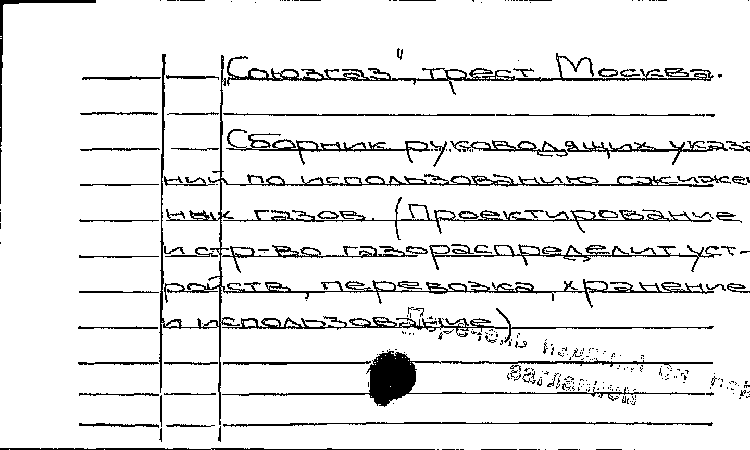 „Союзгаз", трест Москва.
Сборник руководящих указа
ний по использованию сжижен
ных газов. (Проектирование
и стр-во газораспределит.уст-
ройств, перевозка, хранение
и использование)
Перечень изданий см под
заглавием